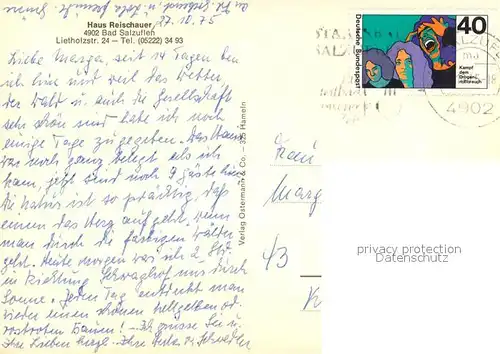 27.10.75
Haus Reischauer
4902 Bad Salzuflen
Lietholzstr. 24 – Tel. (05222) 34 93
Liebe Marga, seit 14 Tagen bin
ich hier und weil das Wetter
der Wald u. auch die Gesellschaft
sehr schön sind habe ich noch
einige Tage zugegeben. Das Haus
war noch ganz belegt als ich
kam, jetzt sind noch 9 Gäste hier
Die Natur ist so prächtig, daß
einem das Herz aufgeht, wenn
man durch die farbigen Wälder
geht. Heute morgen war ich 2 Std
in Richtung Schwaghof durch
Sonne. Jeden Tag entdeckt man
wieder einen schönen hellgelben od.
rostroten Baum! Ich grüsse Sie u.
Ihre Lieben
Verlag Ostermann & Co. – 325 Hameln
Deutsche Bundespost
40
Kampf
dem
Drogen-
mißbrauch
4902
Marg
43
privacy protection
Datenschutz